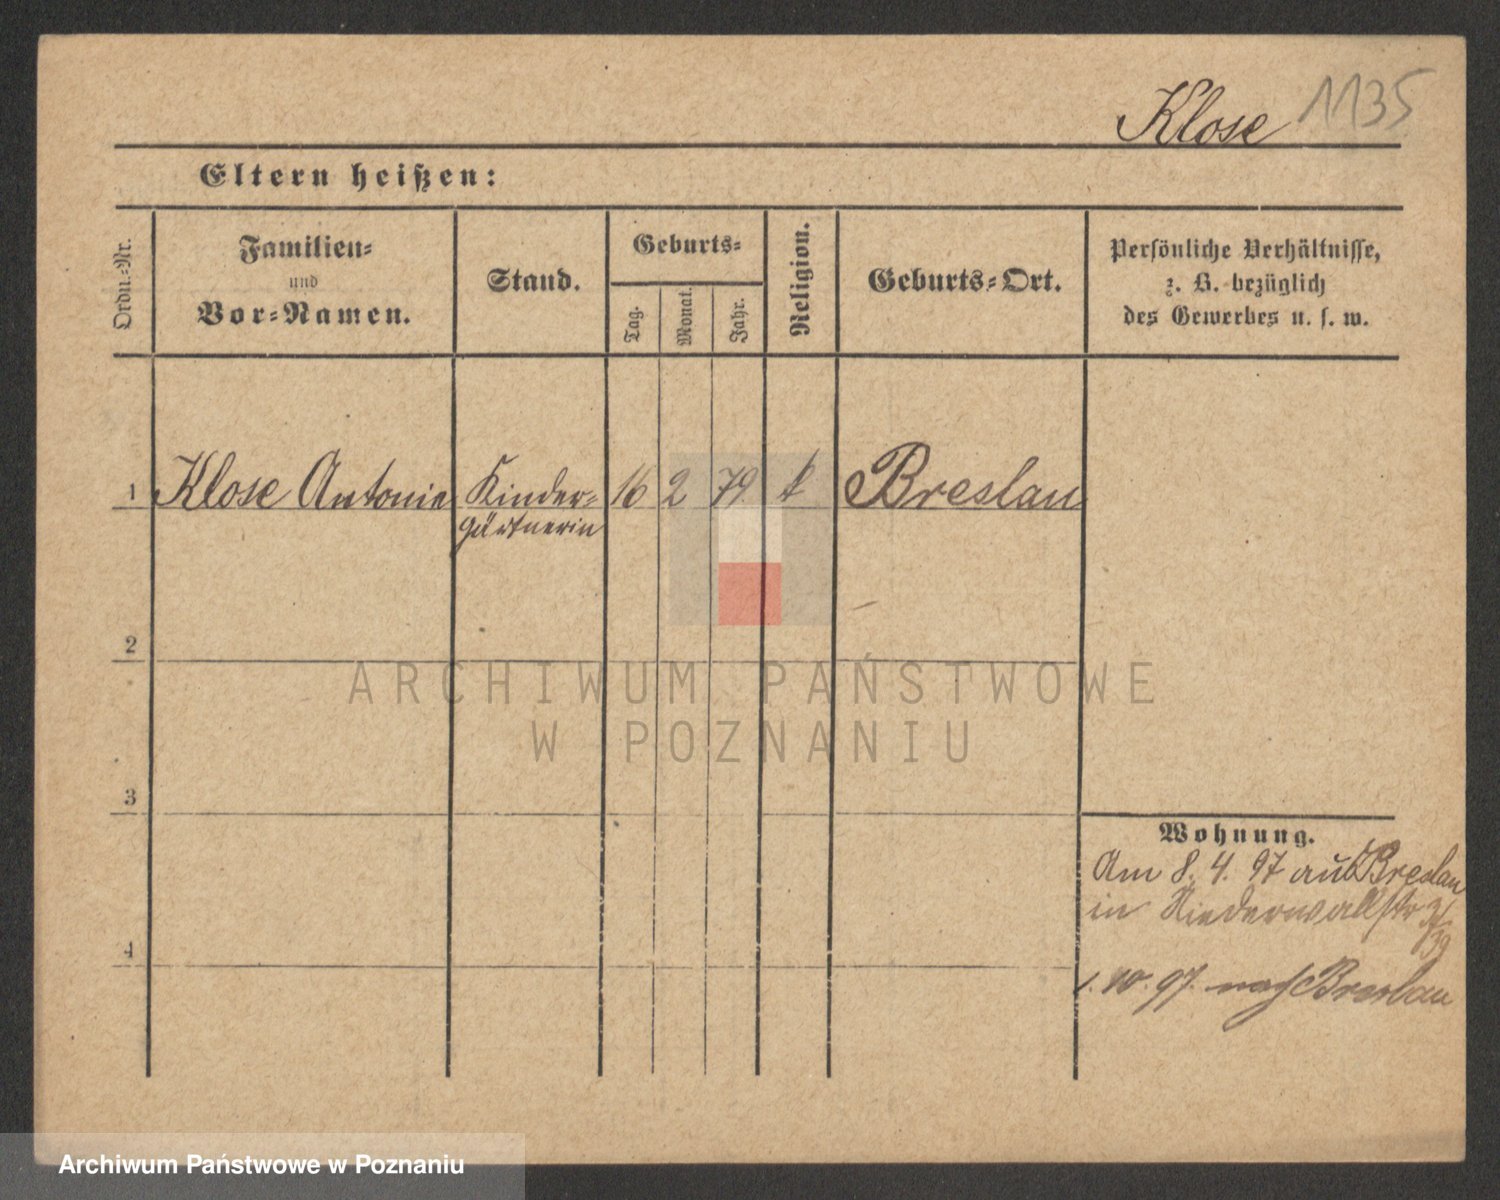 Klose 1135
Eltern heißen:
Ordn.-Nr.
Familien-
und
Vor-Namen.
Stand.
Geburts-
Tag.
Monat.
Jahr.
Religion.
Geburts-Ort.
Persönliche Verhältnisse,
z. B. bezüglich
des Gewerbes u. s. w.
1 Klose Antonie Kinder- 16 2 79 k Breslau
gärtnerin
2
3
4
Wohnung.
Am 8. 4. 97 aus Breslau
in Niederwallstr
1. 10. 97. nach Breslau
ARCHIWUM PAŃSTWOWE
W POZNANIU
Archiwum Państwowe w Poznaniu